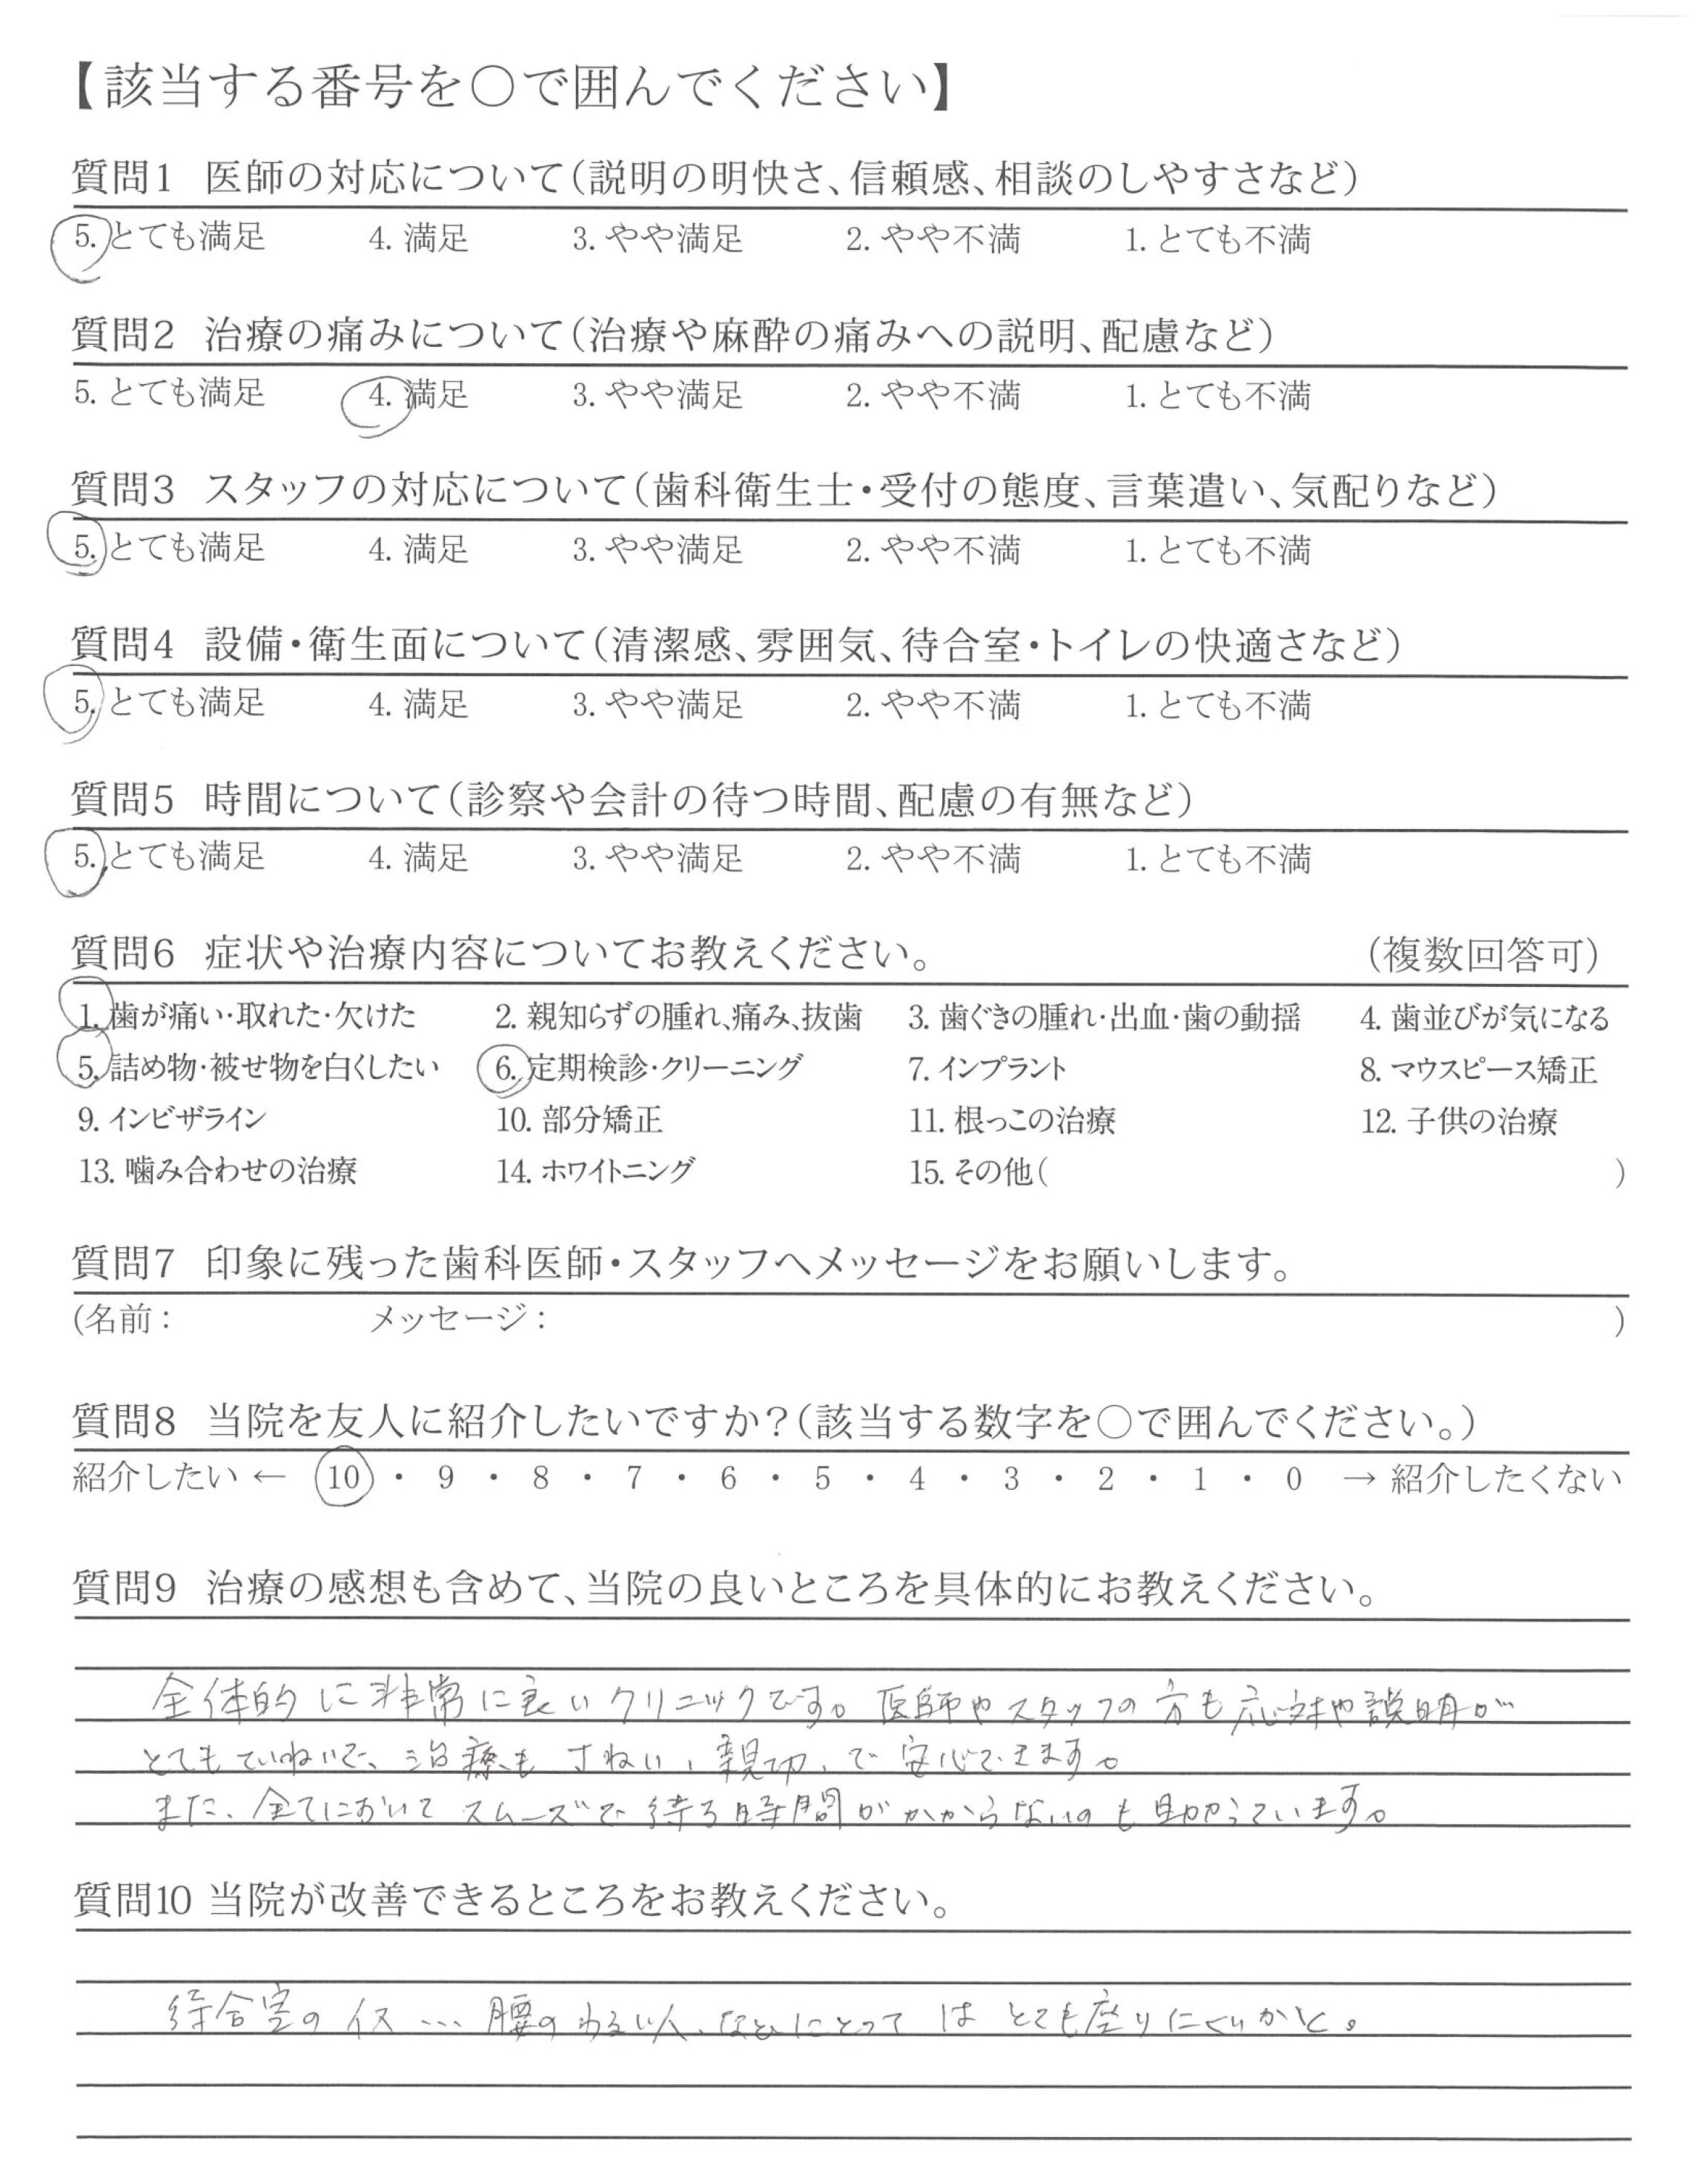 【該当する番号を○で囲んでください】
質問1 医師の対応について(説明の明快さ、信頼感、相談のしやすさなど)
5. とても満足 4. 満足 3. やや満足 2. やや不満 1. とても不満
質問2 治療の痛みについて(治療や麻酔の痛みへの説明、配慮など)
5. とても満足 4. 満足 3. やや満足 2. やや不満 1. とても不満
質問3 スタッフの対応について(歯科衛生士・受付の態度、言葉遣い、気配りなど)
5. とても満足 4. 満足 3. やや満足 2. やや不満 1. とても不満
質問4 設備・衛生面について(清潔感、雰囲気、待合室・トイレの快適さなど)
5. とても満足 4. 満足 3. やや満足 2. やや不満 1. とても不満
質問5 時間について(診察や会計の待つ時間、配慮の有無など)
5. とても満足 4. 満足 3. やや満足 2. やや不満 1. とても不満
質問6 症状や治療内容についてお教えください。 (複数回答可)
1. 歯が痛い・取れた・欠けた 2. 親知らずの腫れ、痛み、抜歯 3. 歯ぐきの腫れ・出血・歯の動揺 4. 歯並びが気になる
5. 詰め物・被せ物を白くしたい 6. 定期検診・クリーニング 7. インプラント 8. マウスピース矯正
9. インビザライン 10. 部分矯正 11. 根っこの治療 12. 子供の治療
13. 噛み合わせの治療 14. ホワイトニング 15. その他( )
質問7 印象に残った歯科医師・スタッフへメッセージをお願いします。
(名前: メッセージ: )
質問8 当院を友人に紹介したいですか?(該当する数字を○で囲んでください。)
紹介したい ← 10 ・ 9 ・ 8 ・ 7 ・ 6 ・ 5 ・ 4 ・ 3 ・ 2 ・ 1 ・ 0 → 紹介したくない
質問9 治療の感想も含めて、当院の良いところを具体的にお教えください。
全体的に非常に良いクリニックです。医師やスタッフの方も応対や説明が
とてもていねいで、治療も 親切、で安心できます。
また、全てにおいてスムーズで待つ時間がかからないのも助かっています。
質問10 当院が改善できるところをお教えください。
待合室のイス… 腰のわるい人、などにとってはとても座りにくいかと。